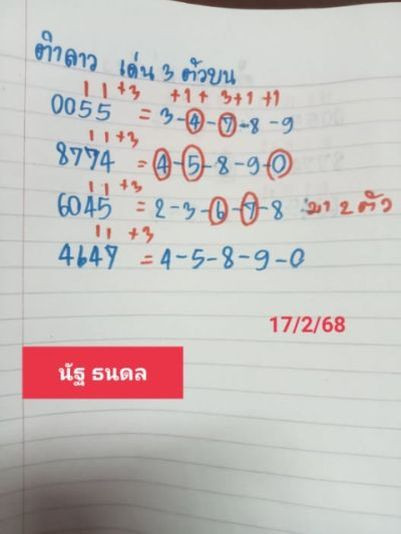 ตำลาว เด่น 3 ตัวบน
11 +3 +1 + 3+1 +1
0055 = 3-4-7-8-9
11+3
8774 = 4-5-8-9-0
11 +3
6045 = 2-3-6-7-8 มา 2 ตัว
11 +3
4647 = 4-5-8-9-0
17/2/68
นัฐ ธนดล